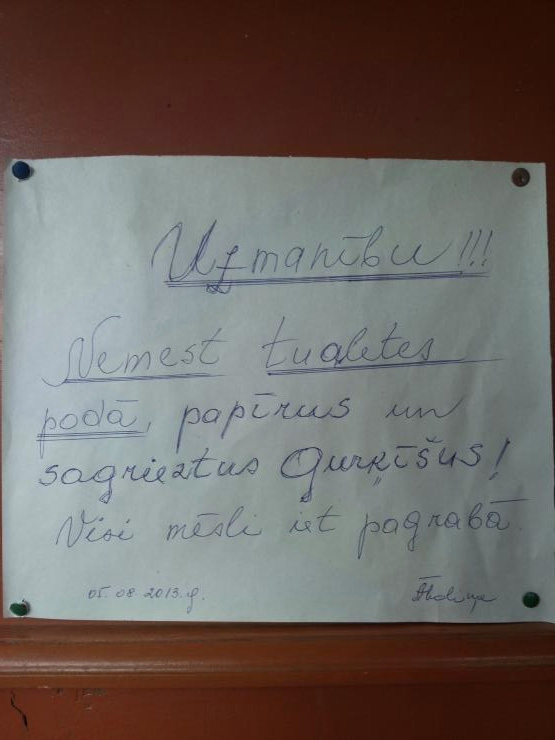 Uzmanību!!!
Nemest tualetes
podā, papīrus un
sagrieztus gurķīšus!
Visi mēsli iet pagrabā.
05. 08. 2013. g.